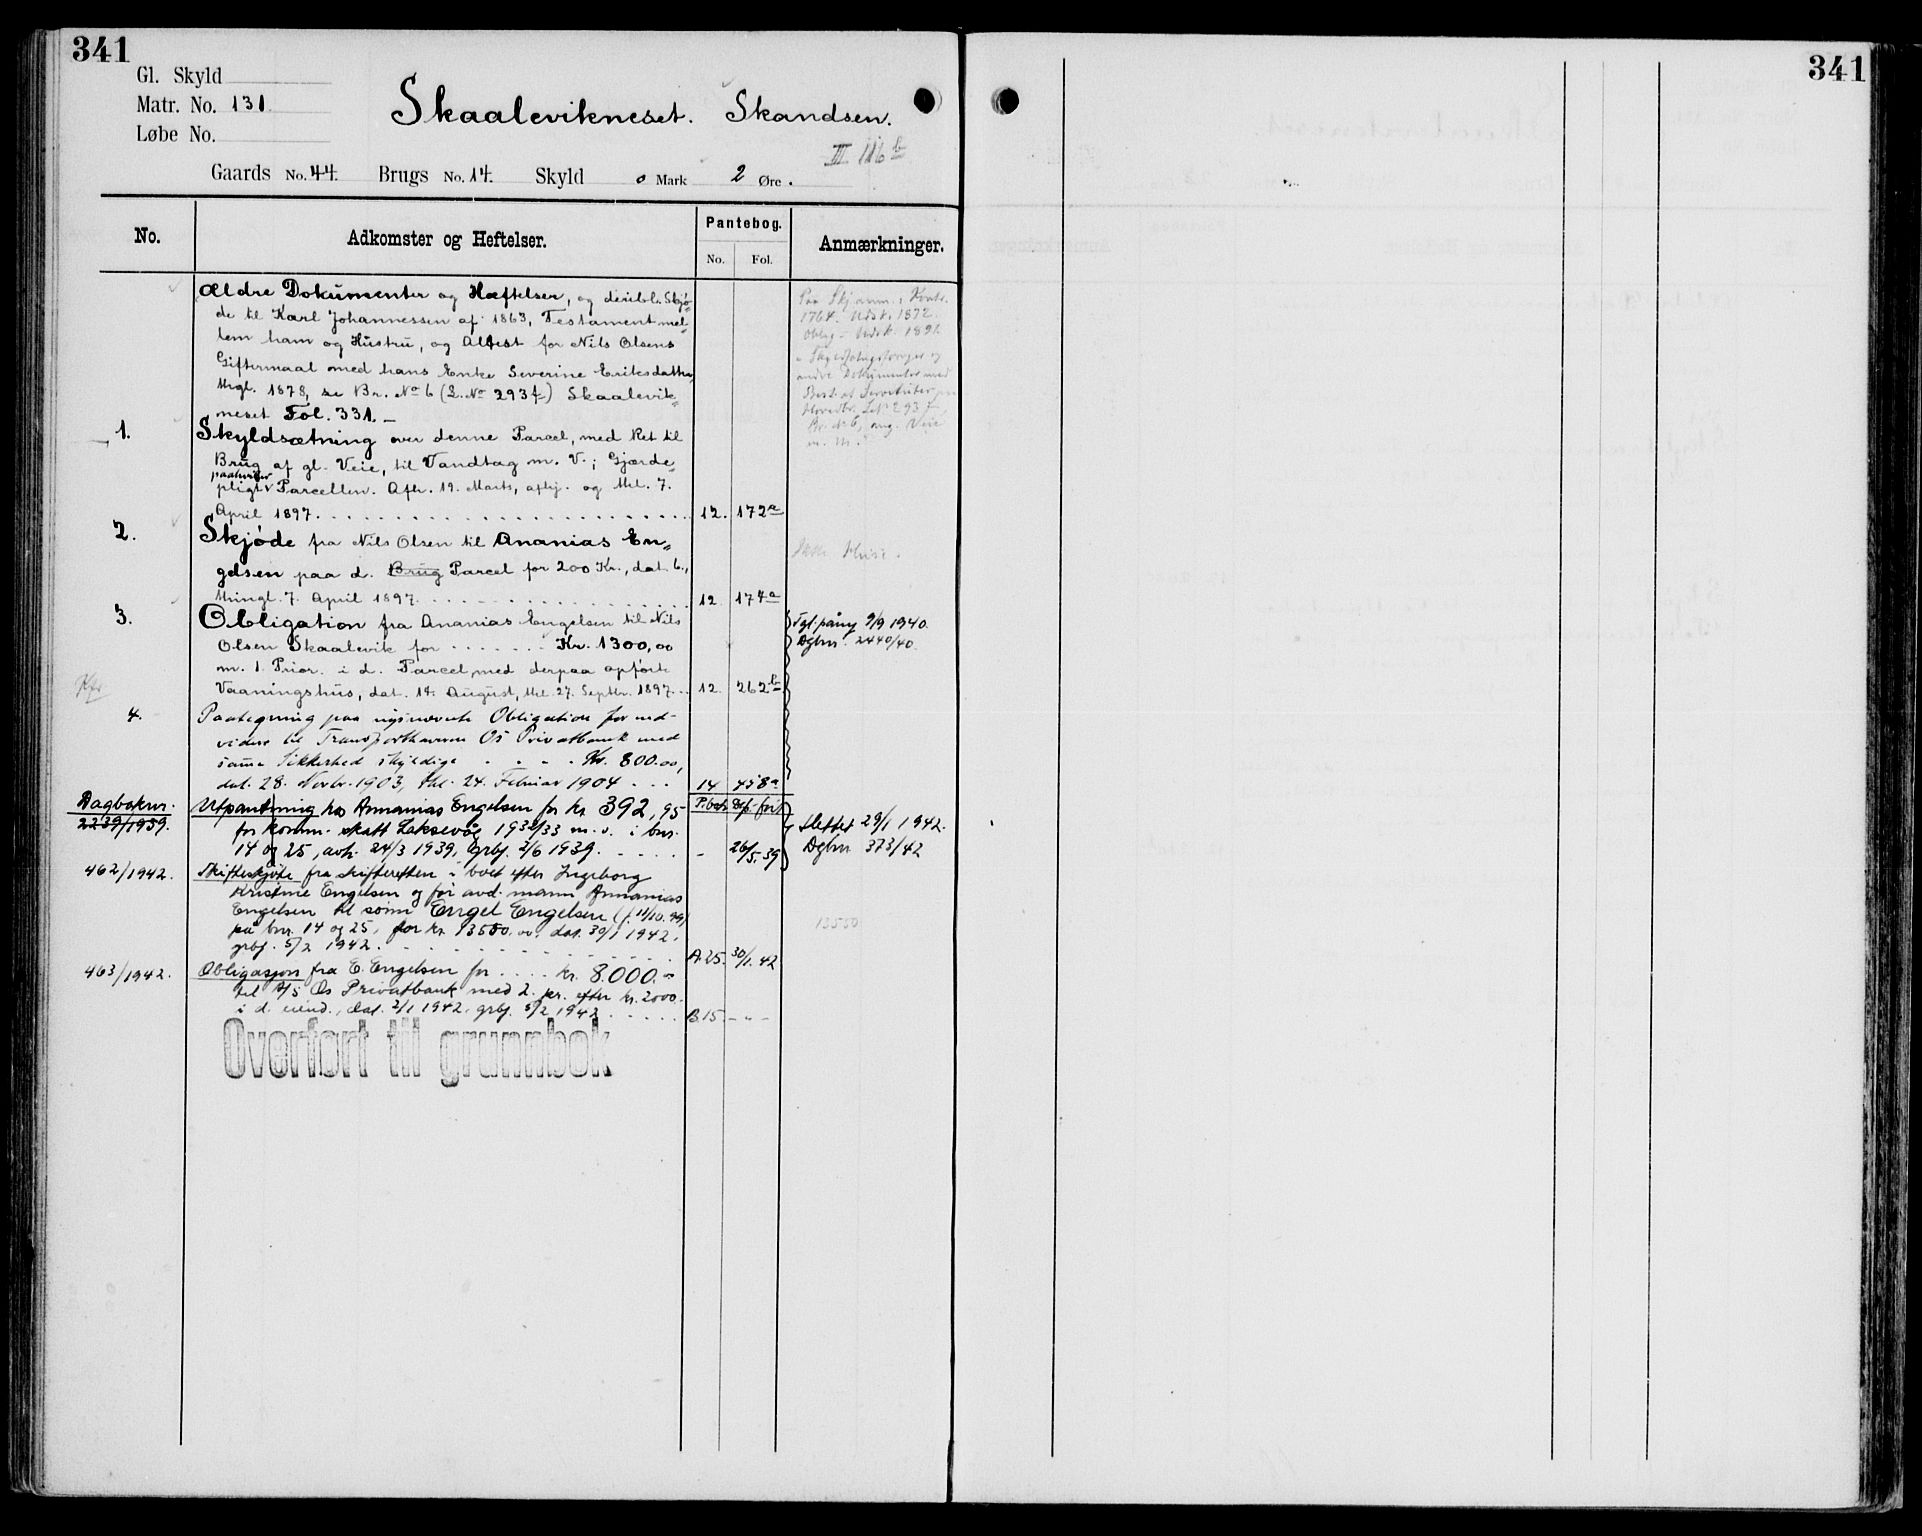 341
341
Gl. Skyld
Matr. No. 131.
Løbe No.
Skaalevikneset. Skandsen.
III 116 b
Gaards No. 44. Brugs No. 14. Skyld 0 Mark 2 Øre.
No.
Adkomster og Heftelser.
Pantebog.
No. Fol.
Anmærkninger.
Ældre Dokumenter og Hæftelser, og deribl. Skjø-
de til Karl Johannessen af 1863, Testament mel-
lem ham og Hustru, og Attest for Nils Olsens
Giftermaal med hans Enke Severine Eriksdatter,
thgl. 1878, se Br. No 6 (L. No 293 f) Skaalevik-
neset Fol. 331. –
1. Skyldsætning over denne Parcel, med Ret til
Brug af gl. Veie, til Vandtag m. V.; Gjærde-
paahviler
pligt Parcellen. Afh. 19. Marts, afhj. og thl. 7.
April 1897. 12. 172a
2. Skjøde fra Nils Olsen til Ananias En-
gelsen paa d. Brug Parcel for 200 Kr., dat. 6.,
thingl. 7. April 1897. 12 174a
3. Obligation fra Ananias Engelsen til Nils
Olsen Skaalevik for Kr. 1300,00
m. 1. Prior. i d. Parcel, med derpaa opført
Vaaningshus, dat. 14. August, thl. 27. Septbr. 1897. 12. 262b
Tgl. påny 9/9 1940.
Dgbnr. 2440/40.
Kfr
4. Paategning paa nysnævnte Obligation for end-
videre til Transporthaveren Os Privatbank med
samme Sikkerhed skyldige Kr. 800.00,
dat. 28. Novbr. 1903, thl. 24. Februar 1904 14 458a
Dagboknr.
2239/1939.
Utpantning hos Annanias Engelsen for kr 392,95
for komm. skatt Laksevåg 1932/33 m. v. i bnr.
14 og 25, avh. 24/3 1939, grbf. 2/6 1939. - 26/5.39
Slettet 29/1 1942.
Dgbnr 373/42
462/1942. Skifteskjøte fra skifteretten i boet efter Ingeborg
Kristine Engelsen og før avd. mann Annanias
Engelsen til sønn Engel Engelsen (f. 11/10.99)
på bnr. 14 og 25, for kr 13550.00. dat. 30/1 1942,
grbf. 5/2 1942. A.25. 30/1.42
13550
463/1942. Obligasjon fra E. Engelsen for kr. 8.000.-
til A/S Os Privatbank med 2. pr. efter kr. 2000.
i d. eiend., dat. 2/1 1942, grbf. 5/2 1942 B.15. - " -
Overført til grunnbok